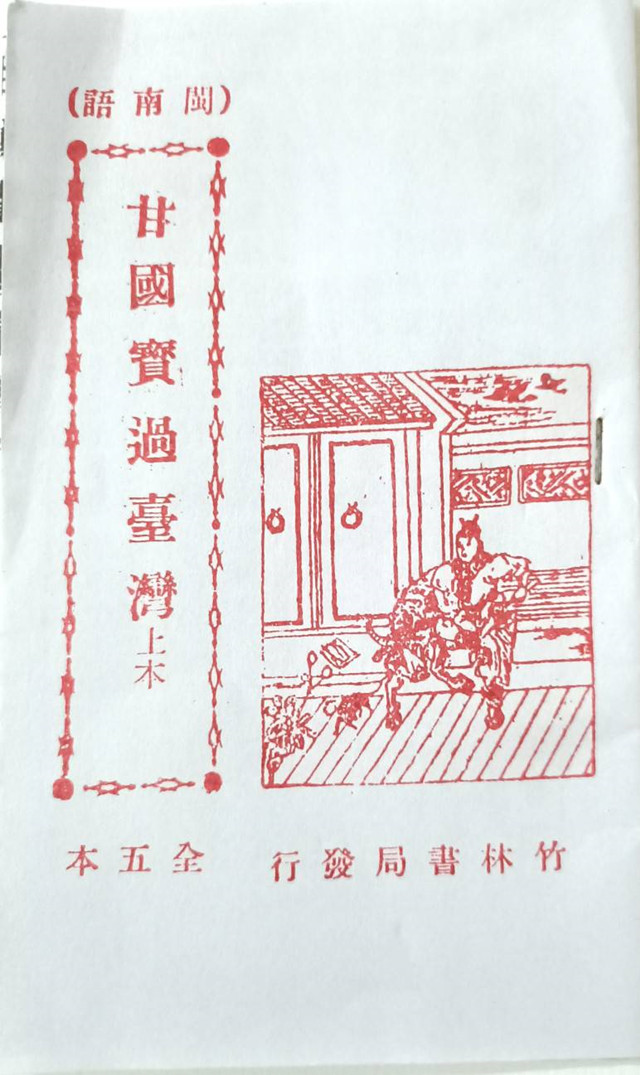 (閩南語)
甘國寶過臺灣上本
竹林書局發行
全五本